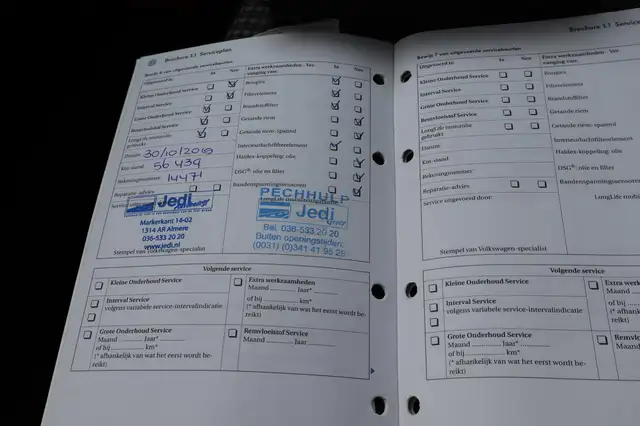 Brochure 1.1 Serviceplan
Bewijs 6 van uitgevoerde servicebeurten
Ja Nee
Kleine Onderhoud Service
Interval Service
Grote Onderhoud Service
Remvloeistof Service
LongLife motorolie
gebruikt
Datum: 30/10/2019
Km-stand: 56 439
Rekeningnummer: 14471
Reparatie-advies
Jedi
Markerkant 16-02
1314 AR Almere
036-533 20 20
www.jedi.nl
Stempel van Volkswagen-specialist
Extra werkzaamheden - Ver-
vanging van:
Ja Nee
Bougies
Filterelement
Brandstoffilter
Getande riem
Getande riem: spanrol
Interieurluchtfilterelement
Haldex-koppeling: olie
DSG®: olie en filter
Bandenspanningssensoren
PECHHULP
Jedi
Bel. 036-533 20 20
Buiten openingstijden:
(0031) (0)341 41 95 25
Volgende service
Kleine Onderhoud Service
Interval Service
volgens variabele service-intervalindicatie
Grote Onderhoud Service
Maand ............ Jaar* ............
of bij ............ km*
(* afhankelijk van wat het eerst wordt be-
reikt)
Extra werkzaamheden
Maand ............ Jaar* ............
of bij ............ km*
(* afhankelijk van wat het eerst wordt be-
reikt)
Remvloeistof Service
Maand ............ Jaar ............
Brochure 1.1 Service
Bewijs 7 van uitgevoerde servicebeurten
Ja Nee
Kleine Onderhoud Service
Interval Service
Grote Onderhoud Service
Remvloeistof Service
LongLife motorolie
gebruikt
Datum:
Km-stand:
Rekeningnummer:
Reparatie-advies
Service uitgevoerd door:
Stempel van Volkswagen-specialist
Extra werkzaamheden - Ver-
vanging van:
Bougies
Filterelement
Brandstoffilter
Getande riem
Getande riem: spanrol
Interieurluchtfilterelement
Haldex-koppeling: olie
DSG®: olie en filter
Bandenspanningssensoren
Volgende service
Kleine Onderhoud Service
Interval Service
volgens variabele service-intervalindicatie
Grote Onderhoud Service
Maand ............ Jaar* ............
of bij ............ km*
(* afhankelijk van wat het eerst wordt be-
reikt)
Extra werk
Maand
of bij
(* afhankelijk
reikt)
Remvloei
Maand